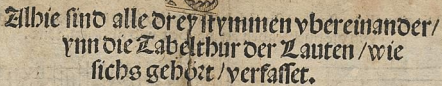 Alhie sind alle drey stymmen vbereinander/
ynn die Tabelthur der Lauten/wie
sichs gehört/verfasset.